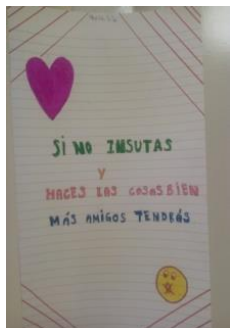 SI NO INSUTAS
Y
HACES LAS COSAS BIEN
MÁS AMIGOS TENDRÁS